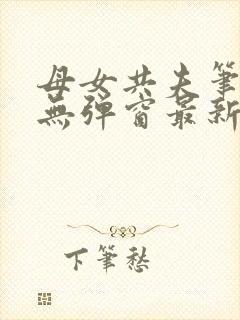 母女共夫筆
無彈窗最新
下筆愁